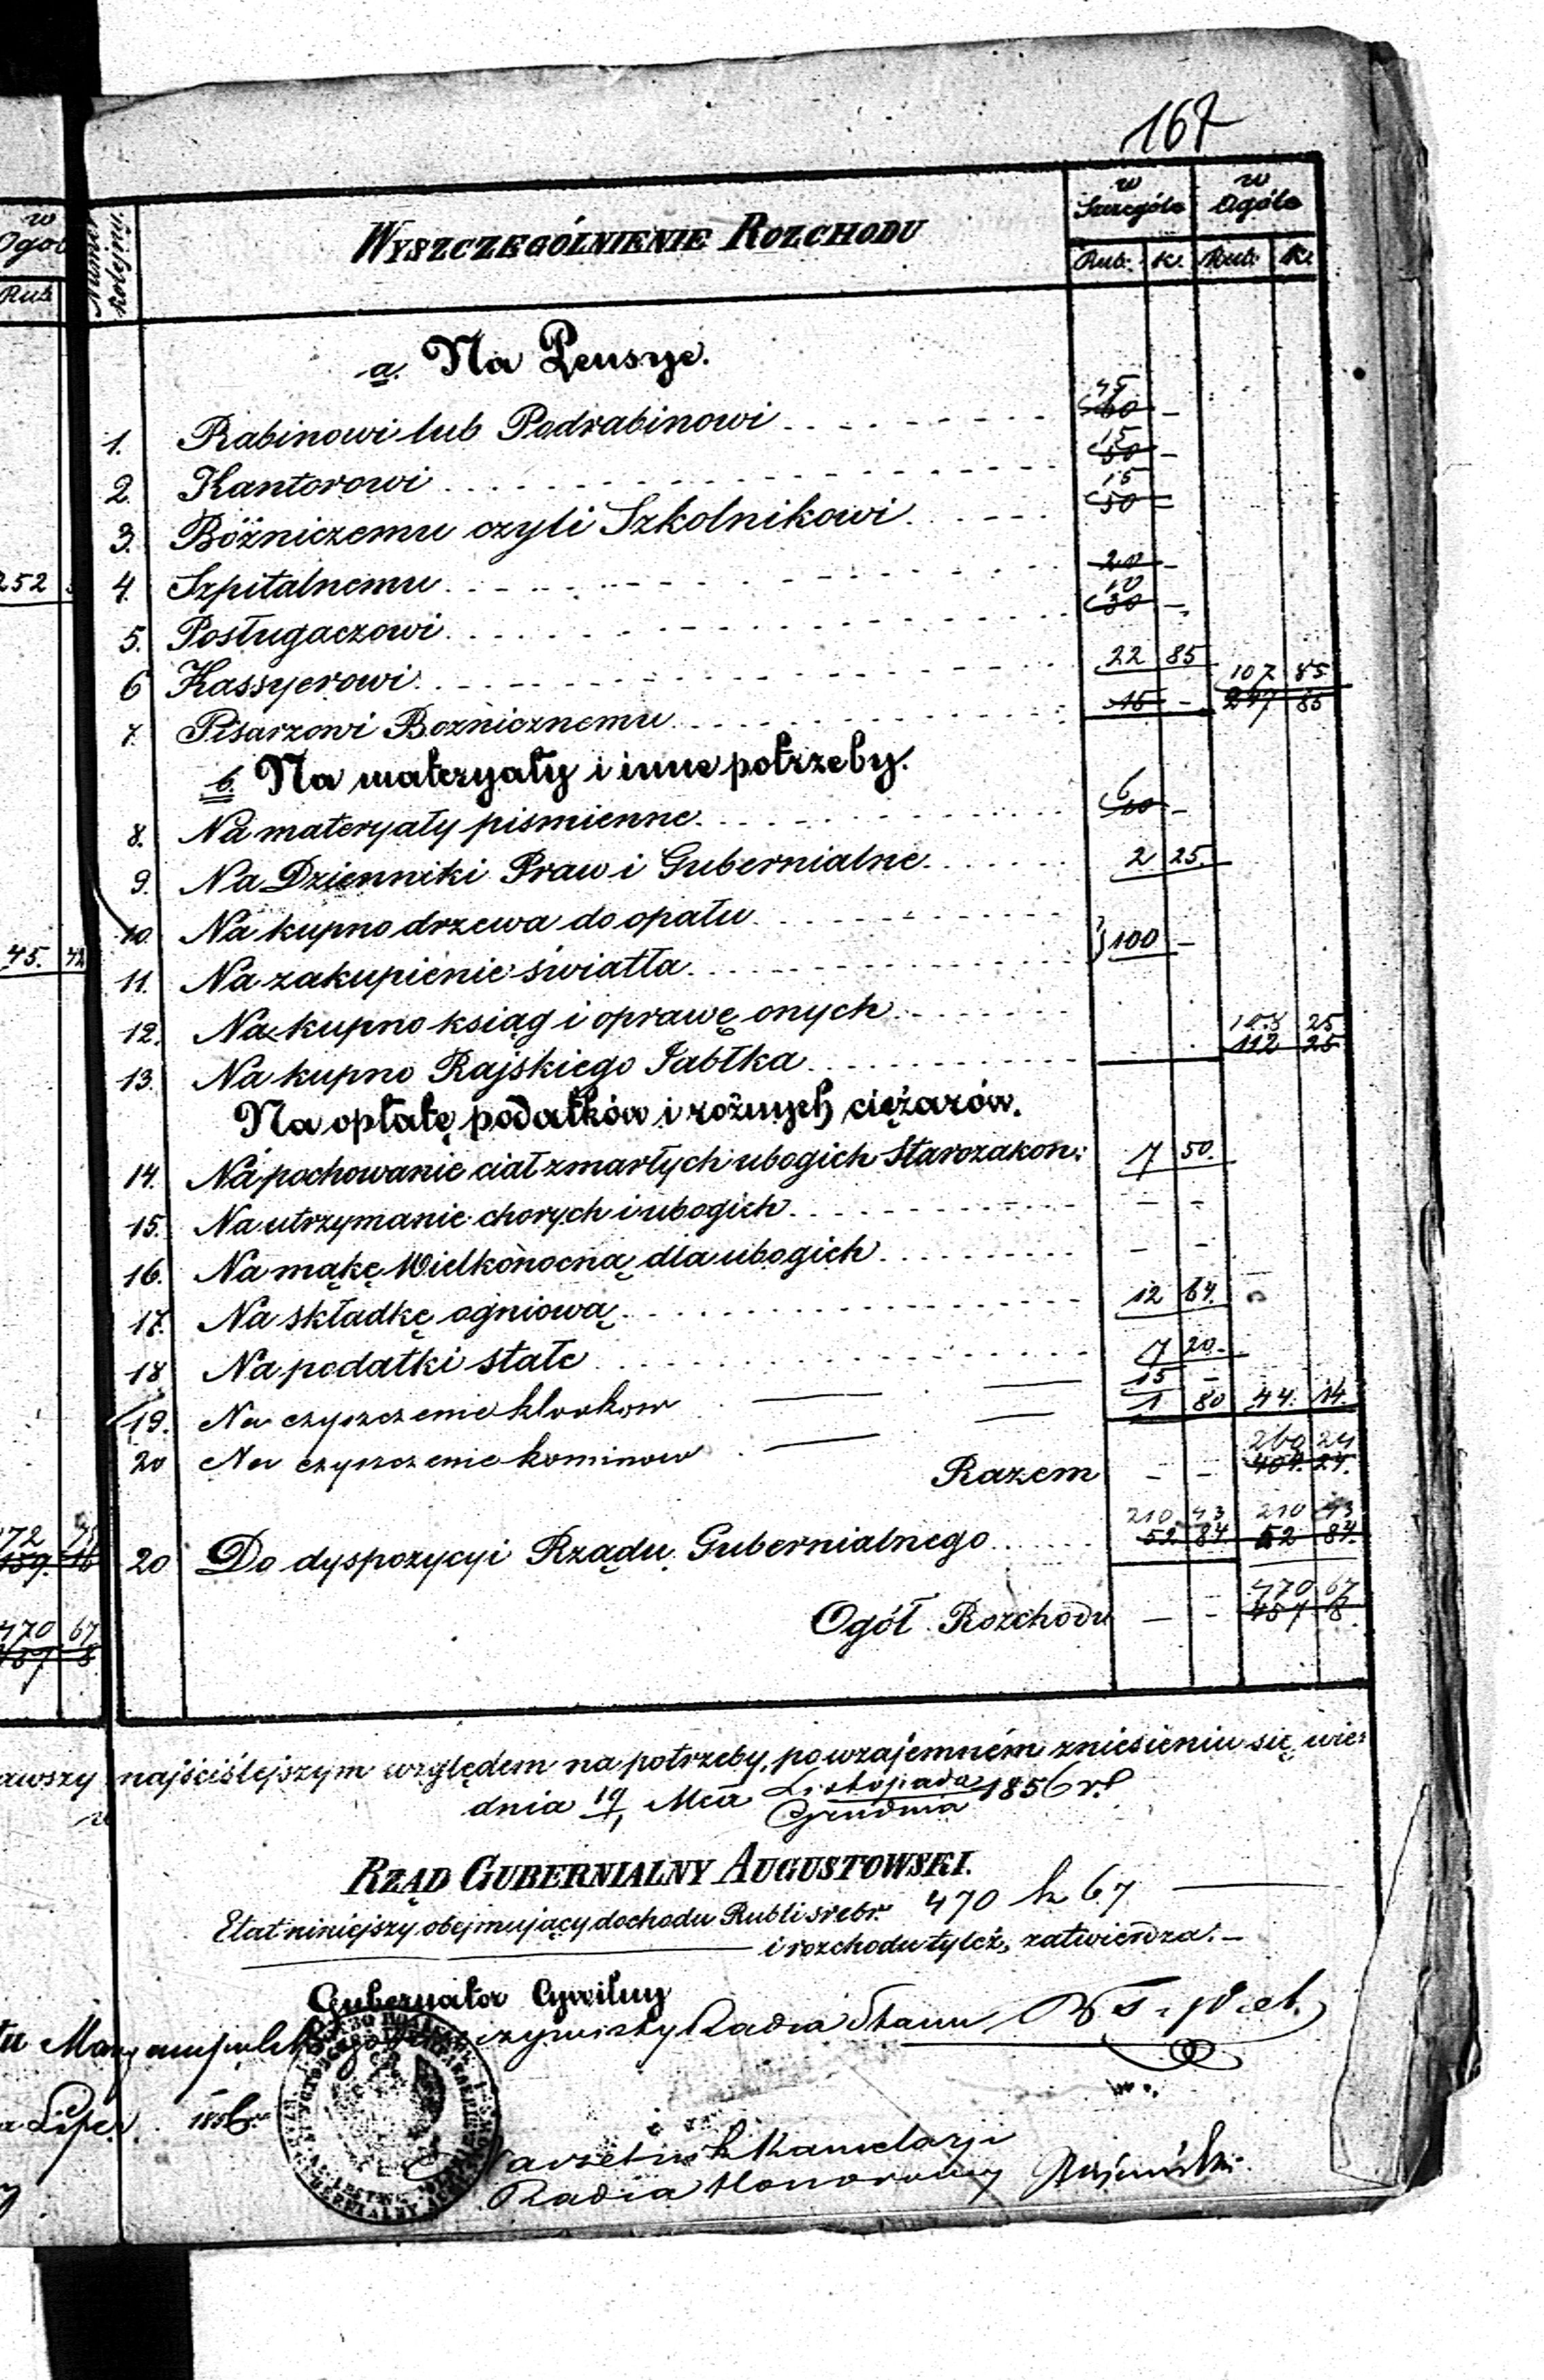 167
w Ogół
Rub.
Numer kolejny.
WYSZCZEGÓLNIENIE ROZCHODU
w Szczególe
w Ogóle
Rub. K. Rub. K.
a. Na Pensye.
45
1. Rabinowi lub Podrabinowi 60 –
15
2. Kantorowi 50 –
15
3. Bóżniczemu czyli Szkolnikowi 50 –
252
4. Szpitalnemu 20 –
10
5. Posługaczowi 30 –
6 Kassyerowi 22 85
107 85
7. Pisarzowi Boznicznemu 15 – 247 85
b. Na materyały i inne potrzeby.
6
8. Na materyały pismienne 10 –
9. Na Dzienniki Praw i Gubernialne 2 25.
10. Na kupno drzewa do opału
} 100 –
45. 42
11. Na zakupienie światła
12. Na kupno ksiąg i oprawę onych
108 25
13. Na kupno Rajskiego Jabłka 112 25
Na opłatę podatków i rożnych ciężarów.
14. Na pochowanie ciał zmarłych ubogich Starozakon: 7 50.
15. Na utrzymanie chorych i ubogich – –
16. Na mąkę Wielkonocną dla ubogich – –
17. Na składkę ogniową 12 64.
18 Na podatki stałe 7 20.
19. Na czyszczenie kloakow 15 –
20 Na czyszczenie kominow 1 80 44. 14.
260 24
Razem – – 404. 24.
210 43 210 43
20 Do dyspozycyi Rządu Gubernialnego 52 84 52 84.
470 67
Ogół Rozchodu – – 457 8
470 67
457 8
najściślejszym względem na potrzeby, po wzajemném zniesieniu się, wier
dnia 19/1 Mca Listopada/Grudnia 1856 r.
RZĄD GUBERNIALNY AUGUSTOWSKI.
Etat niniejszy obejmujący dochodu Rubli srebr. 470 k 67
i rozchodu tyleż, zatwierdza.
Gubernator Cywilny
Rzeczywisty Radca Stanu
1856
Naczelnik Kancelaryi
Radca Honorowy